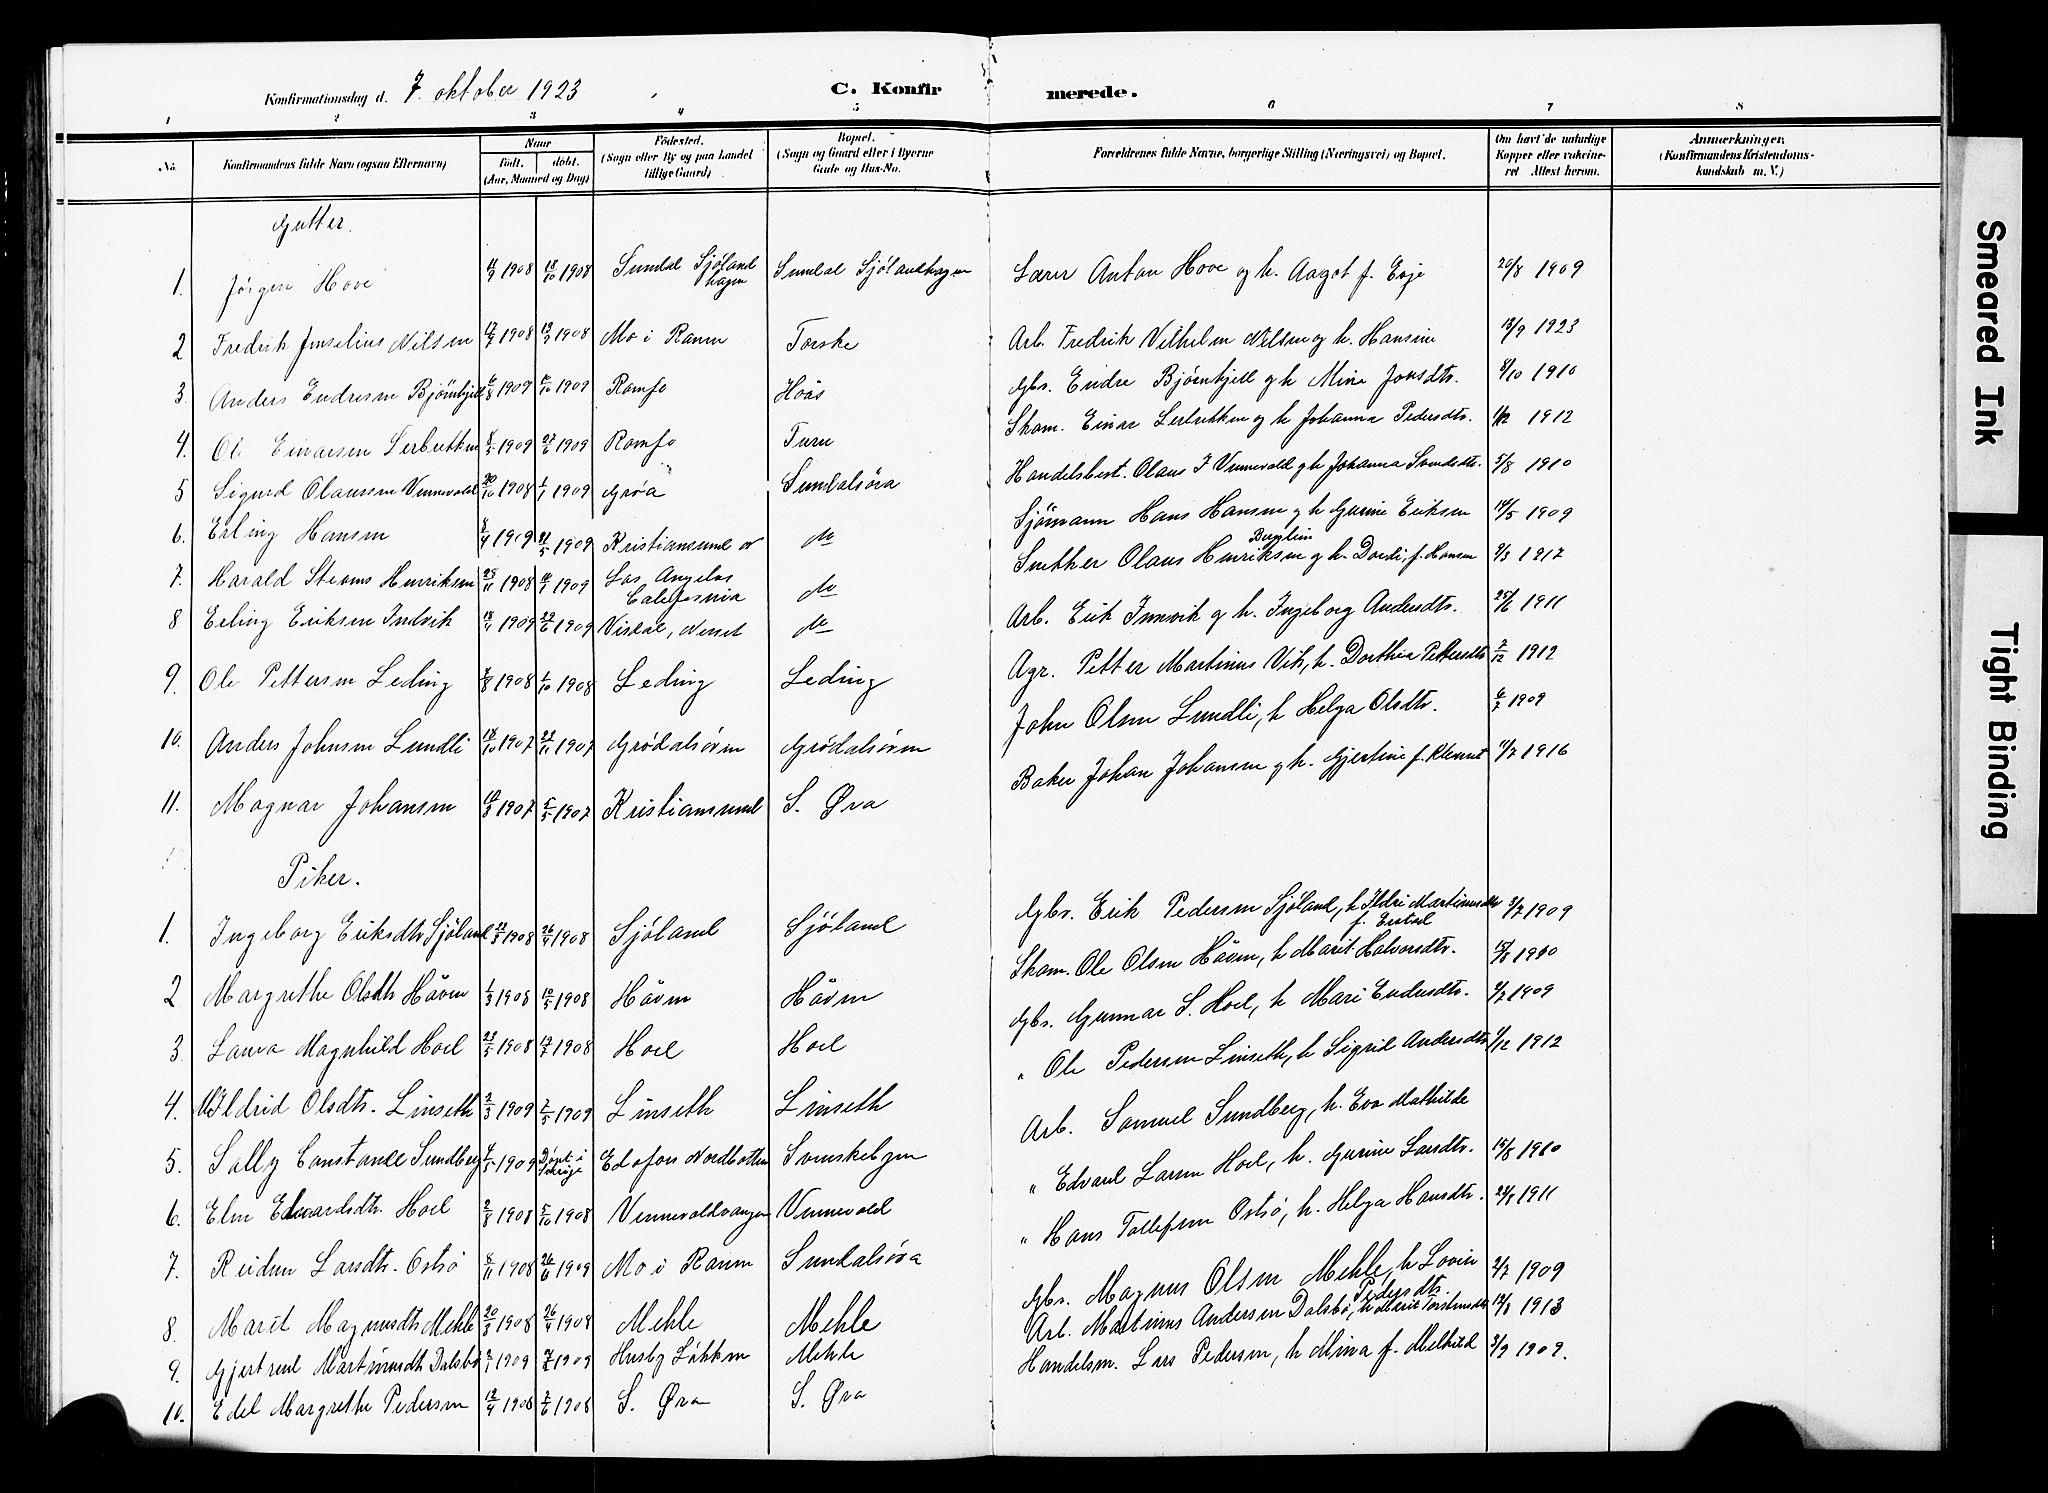 Konfirmationsdag d. 7. oktober 1923
C. Konfirmerede.
1 2 3 4 5 6 7 8
No.
Konfirmandens fulde Navn (ogsaa Efternavn)
Naar
født. døbt.
(Aar, Maaned og Dag)
Fødested.
(Sogn eller By og paa Landet
tillige Gaard)
Bopæl.
(Sogn og Gaard eller i Byerne
Gade og Hus-No.
Forældrenes fulde Navne, borgerlige Stilling (Næringsvei) og Bopæl.
Om havt de naturlige
Kopper eller vakcine-
ret Attest herom.
Anmærkninger.
(Konfirmandens Kristendoms-
kundskab m. V.)
Gutter.
1. Jörgen Hove 1908 18/10 1908 Sundal Sjöland hagen Sundal Sjölandhagen Lærer Anton Hove og h. Aagot f. Evje 20/8 1909
2 Fredrik Nilsen 1908 1908 Mo i Ranen Torske Arb. Fredrik Vilhelm Nilsen og h. Hansine 13/9 1923
3. Anders Endresen Björnhjell 1909 1909 Romfo Hoås Gbr. Endre Björnhjell og h Mine Jonsdtr. 1910
4. Ole Einarsen 1909 27/6 1909 Romfo Furu Skom. Einar og h Johanna Pedersdtr. 1912
5 Sigurd Olaussen Vennevold 20/10 1908 1/1 1909 Gröa Sundalsöra Handelsbest. Olaus I Vennevold og h Johanna 5/8 1910
6. Erling Hansen 1909 1909 Kristiansund N Do Sjömann Hans Hansen og h Gurine Eriksen 14/5 1909
7. Harald Henriksen 1908 1909 Los Angelos California Do Snekker Olaus Henriksen Berglien og h. Dordi, f. Hansen 1917
8 Erling Eriksen Indvik 1909 1909 Visdal, Nesset Do Arb. Erik Innvik og h. Ingeborg Andersdtr. 1911
9. Ole Pettersen Leding 1908 1908 Leding Leding Agr. Petter Martinus Vik, h. Dorthea Pettersdtr 2/12 1912
10. Anders Johnsen Lundli 18/10 1907 1907 Grödalsören Grödalsören John Olsen Lundli, h Helga Olsdtr. 1909
11. Magnar Johansen 1907 5/5 1907 Kristiansund S. Øra Baker Johan Johansen og h. Gjertine f. 1916
Piker.
1. Ingeborg Eriksdtr Sjöland 22/3 1908 26/4 1908 Sjöland Sjöland Gbr. Erik Pedersen Sjöland, h Ildri Martinusdtr 3/7 1909
2 Margrethe Olsdtr Håven 1/3 1908 10/5 1908 Håven Håven Skom. Ole Olsen Håven, h Marit Halvorsdtr. 1910
3 Laura Magnhild Hoel 23/5 1908 1908 Hoel Hoel Gbr. Gunnar S. Hoel, h Mari Endresdtr. 1909
4. Ildrid Olsdtr. Linseth 2/3 1909 2/5 1909 Linseth Linseth " Ole Pedersen Linseth, h Sigrid Andersdtr 1/12 1912
5. Sally Constance Sundberg 1909 Döpt i Sverige Edefors Nordbotten Svenskebyen Arb. Samuel Sundberg, h. Eva Mathilde
6. Elen Edvardsdtr. Hoel 2/8 1908 5/10 1908 Vennevoldvangen Vennevold " Edvard Larsen Hoel, h. Gurine Larsdtr. 1910
7. Reidun Larsdtr. Ostsö 8/11 1908 26/6 1909 Mo i Ranen Sundalsöra " Hans Tollefsen Ostsö, h. Helga Hansdtr. 1911
8. Marit Magnusdtr Mehle 20/3 1908 26/4 1908 Mehle Mehle Gbr. Magnus Olsen Mehle, h Lovise Pedersdtr. 2/7 1909
9. Gjertrud Martinusdtr Dalsbö 1909 1909 Husby Lökken Mehle Arb. Martinus Andersen Dalsbö, h Marit Torstensdtr 1913
10. Edel Margrethe Pedersen 1908 7/6 1908 S. Øra S. Øra Handelsm. Lars Pedersen, h Mina f. Melkild 3/9 1909.
Smeared Ink
Tight Binding